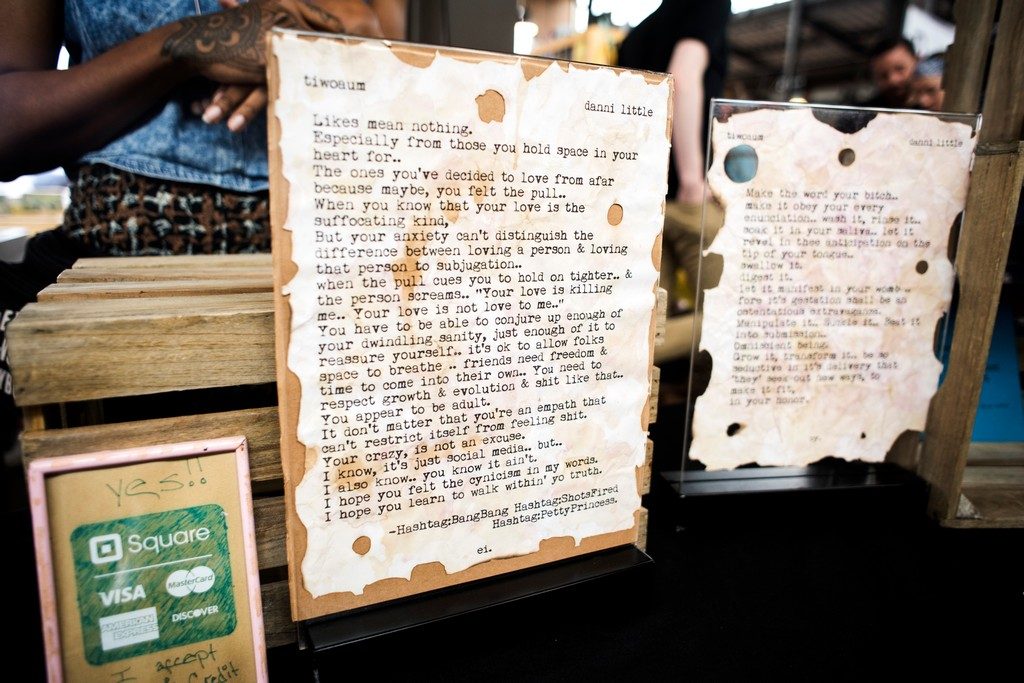 tiwoaum
danni little
Likes mean nothing.
Especially from those you hold space in your
heart for..
The ones you've decided to love from afar
because maybe, you felt the pull..
When you know that your love is the
suffocating kind,
But your anxiety can't distinguish the
difference between loving a person & loving
that person to subjugation..
when the pull cues you to hold on tighter.. &
the person screams.. "Your love is killing
me.. Your love is not love to me.."
You have to be able to conjure up enough of
your dwindling sanity, just enough of it to
reassure yourself.. it's ok to allow folks
space to breathe .. friends need freedom &
time to come into their own.. You need to
respect growth & evolution & shit like that..
You appear to be adult.
It don't matter that you're an empath that
can't restrict itself from feeling shit.
Your crazy, is not an excuse.
I know, it's just social media.. but..
I also know.. you know it ain't.
I hope you felt the cynicism in my words.
I hope you learn to walk within' yo truth.
-Hashtag:BangBang Hashtag:ShotsFired
Hashtag:PettyPrincess.
ei.
tiwoaum
danni little
Make the word your bitch..
make it obey your every
enunciation.. wash it, rinse it..
soak it in your saliva.. let it
revel in thee anticipation on the
tip of your tongue..
swallow it.
digest it.
let it manifest in your womb..
fore it's gestation shall be an
ostentatious extravagance.
Manipulate it.. it.. Beat it
into submission..
Omniscient being.
Grow it, transform it.. be so
seductive in it's delivery that
'they' seek out new ways, to
make it fit,
in your honor.
yes!!
Square
VISA
MasterCard
AMERICAN EXPRESS
DISCOVER
I accept
Credit